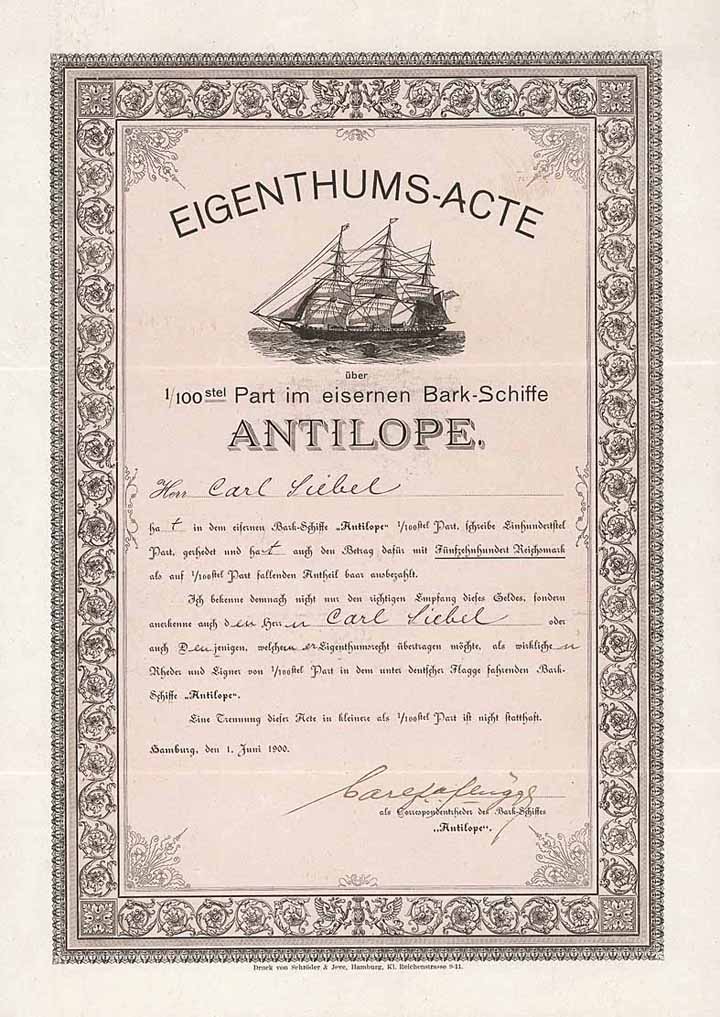 EIGENTHUMS-ACTE
über
1/100 stel Part im eisernen Bark-Schiffe
ANTILOPE.
Herr Carl Siebel
hat in dem eisernen Bark-Schiffe „Antilope“ 1/100stel Part, schreibe Einhundertstel
Part, gerhedet und hat auch den Betrag dafür mit Fünfzehnhundert Reichsmark
als auf 1/100stel Part fallenden Antheil baar ausbezahlt.
Ich bekenne demnach nicht nur den richtigen Empfang dieses Geldes, sondern
anerkenne auch den Herrn Carl Siebel oder
auch Denjenigen, welchem er Eigenthumsrecht übertragen möchte, als wirklichen
Rheder und Eigner von 1/100stel Part in dem unter deutscher Flagge fahrenden Bark-
Schiffe „Antilope“.
Eine Trennung dieser Acte in kleinere als 1/100stel Part ist nicht statthaft.
Hamburg, den 1. Juni 1900.
als Correspondentrheder des Bark-Schiffes
„Antilope“.
Druck von Schröder & Jeve, Hamburg, Kl. Reichenstrasse 9-11.